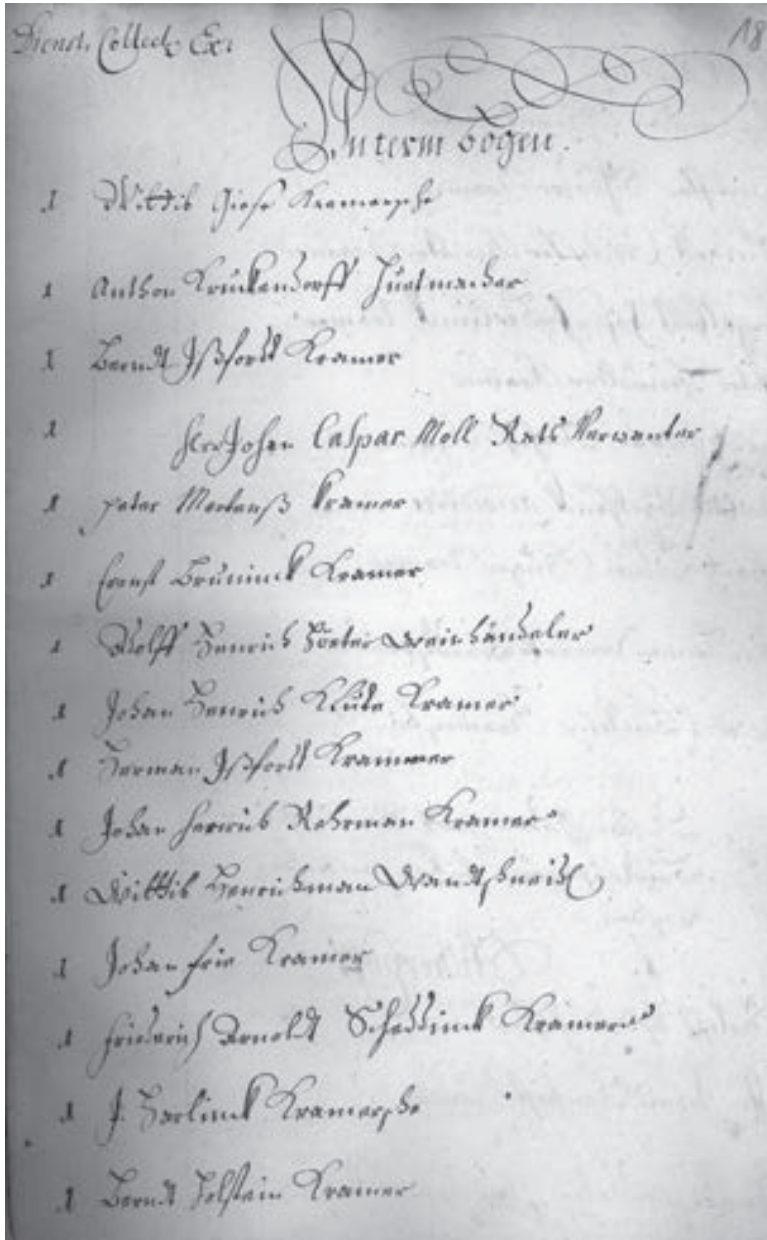 Dienst Collect Ex:
18
Unterm bogen.
1 Wittib Giese Kramersche
1 Anthon Kruckendorff Huetmacher
1 Berndt Ißfordt Kramer
1 Herr Johan Caspar Moll Rats Verwanter
1 peter Mertenß Kramer
1 Ernst Bruninck Kramer
1 Rolff Henrich Weinhändeler
1 Johan Henrich Klute Kramer
1 Herman Ißfordt Kramer
1 Johan Rohrman Kramer
1 Wittib Henrichman Wandtschneider
1 Johan frie Kramer
1 friderich Arnoldt Kramer
1 J. Harlinck Kramersche
1 Berndt Holstein Kramer